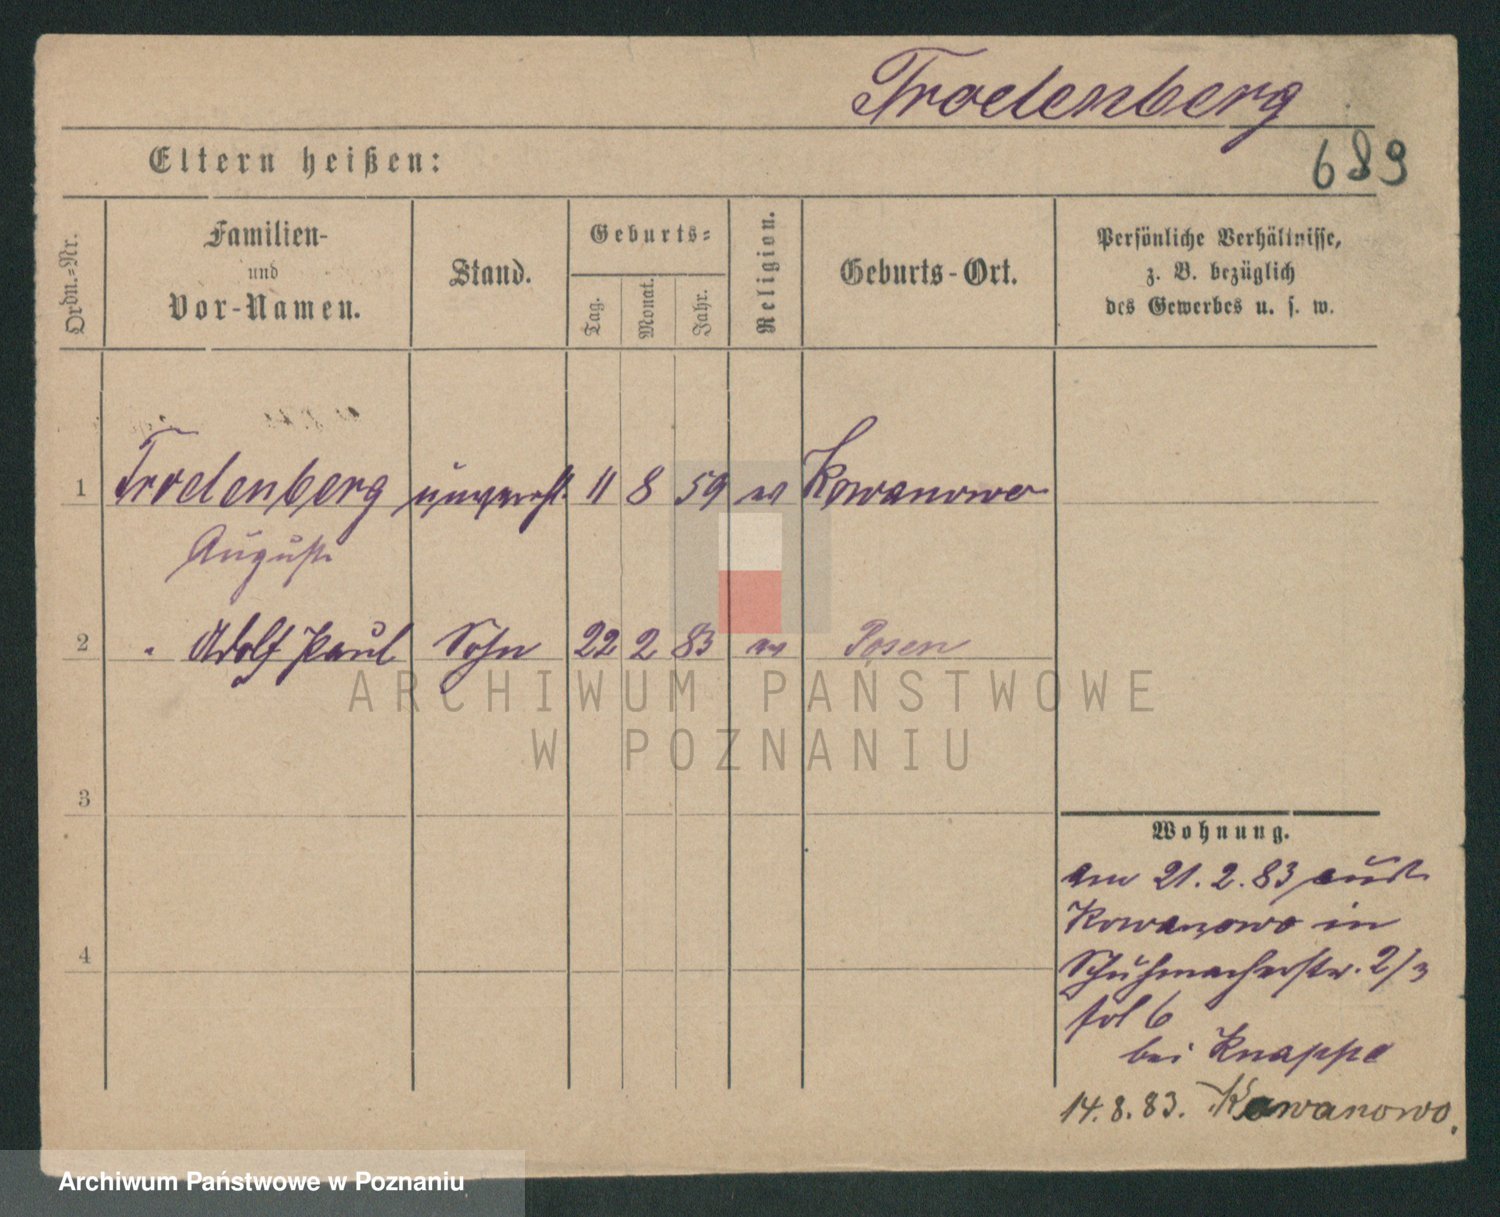 Trodenberg
689
Eltern heißen:
Ordn.-Nr.
Familien-
und
Vor-Namen.
Stand.
Geburts-
Tag.
Monat.
Jahr.
Religion.
Geburts-Ort.
Persönliche Verhältnisse,
z. B. bezüglich
des Gewerbes u. s. w.
1 Trodenberg unvereh. 11 8 59 ev Kowanowo
August
2 " Adolf Paul Sohn 22 2 83 ev Posen
ARCHIWUM PAŃSTWOWE
W POZNANIU
3
Wohnung.
am 21.2.83 aus
Kowanowo in
4
Schuhmacherstr. 2/3
fol 6
bei Knappe
14.8.83. Kowanowo.
Archiwum Państwowe w Poznaniu